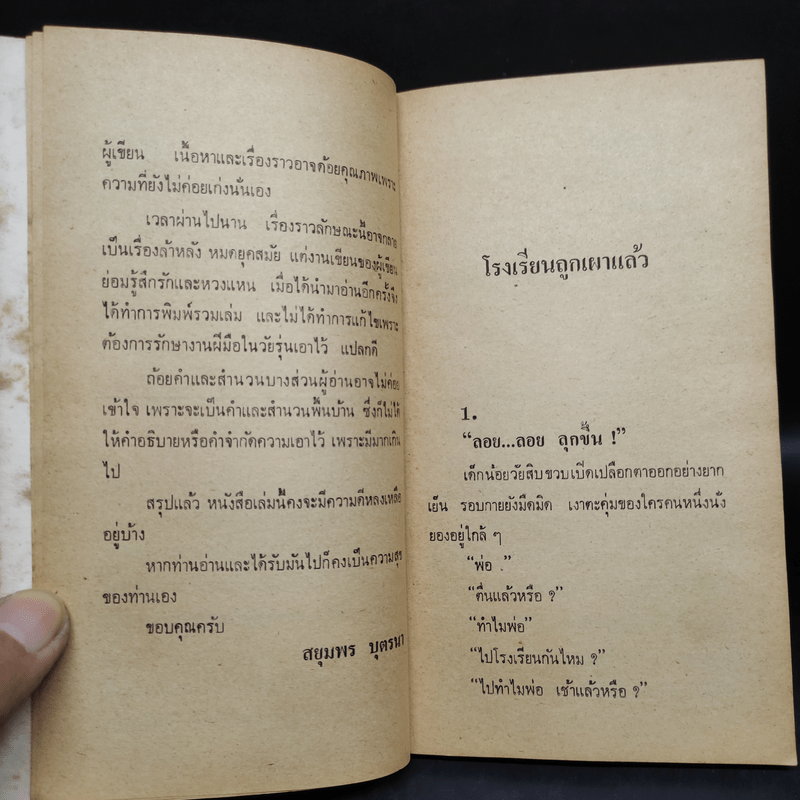 ผู้เขียน เนื้อหาและเรื่องราวอาจด้อยคุณภาพเพราะ
ความที่ยังไม่ค่อยเก่งนั่นเอง
เวลาผ่านไปนาน เรื่องราวลักษณะนี้อาจกลาย
เป็นเรื่องล้าหลัง หมดยุคสมัย แต่งานเขียนของผู้เขียน
ย่อมรู้สึกรักและหวงแหน เมื่อได้นำมาอ่านอีกครั้งจึง
ได้ทำการพิมพ์รวมเล่ม และไม่ได้ทำการแก้ไขเพราะ
ต้องการรักษางานฝีมือในวัยรุ่นเอาไว้ แปลกดี
ถ้อยคำและสำนวนบางส่วนผู้อ่านอาจไม่ค่อย
เข้าใจ เพราะจะเป็นคำและสำนวนพื้นบ้าน ซึ่งก็ไม่ได้
ให้คำอธิบายหรือคำจำกัดความเอาไว้ เพราะมีมากเกิน
ไป
สรุปแล้ว หนังสือเล่มนี้คงจะมีความดีหลงเหลือ
อยู่บ้าง
หากท่านอ่านและได้รับมันไปก็คงเป็นความสุข
ของท่านเอง
ขอบคุณครับ
สยุมพร บุตรนา
โรงเรียนถูกเผาแล้ว
1.
“ลอย...ลอย ลุกขึ้น !”
เด็กน้อยวัยสิบขวบเปิดเปลือกตาออกอย่างยาก
เย็น รอบกายยังมืดมิด เงาตะคุ่มของใครคนหนึ่งนั่ง
ยองอยู่ใกล้ ๆ
“พ่อ .”
“ตื่นแล้วหรือ ?”
“ทำไมพ่อ”
“ไปโรงเรียนกันไหม ?”
“ไปทำไมพ่อ เช้าแล้วหรือ ?”